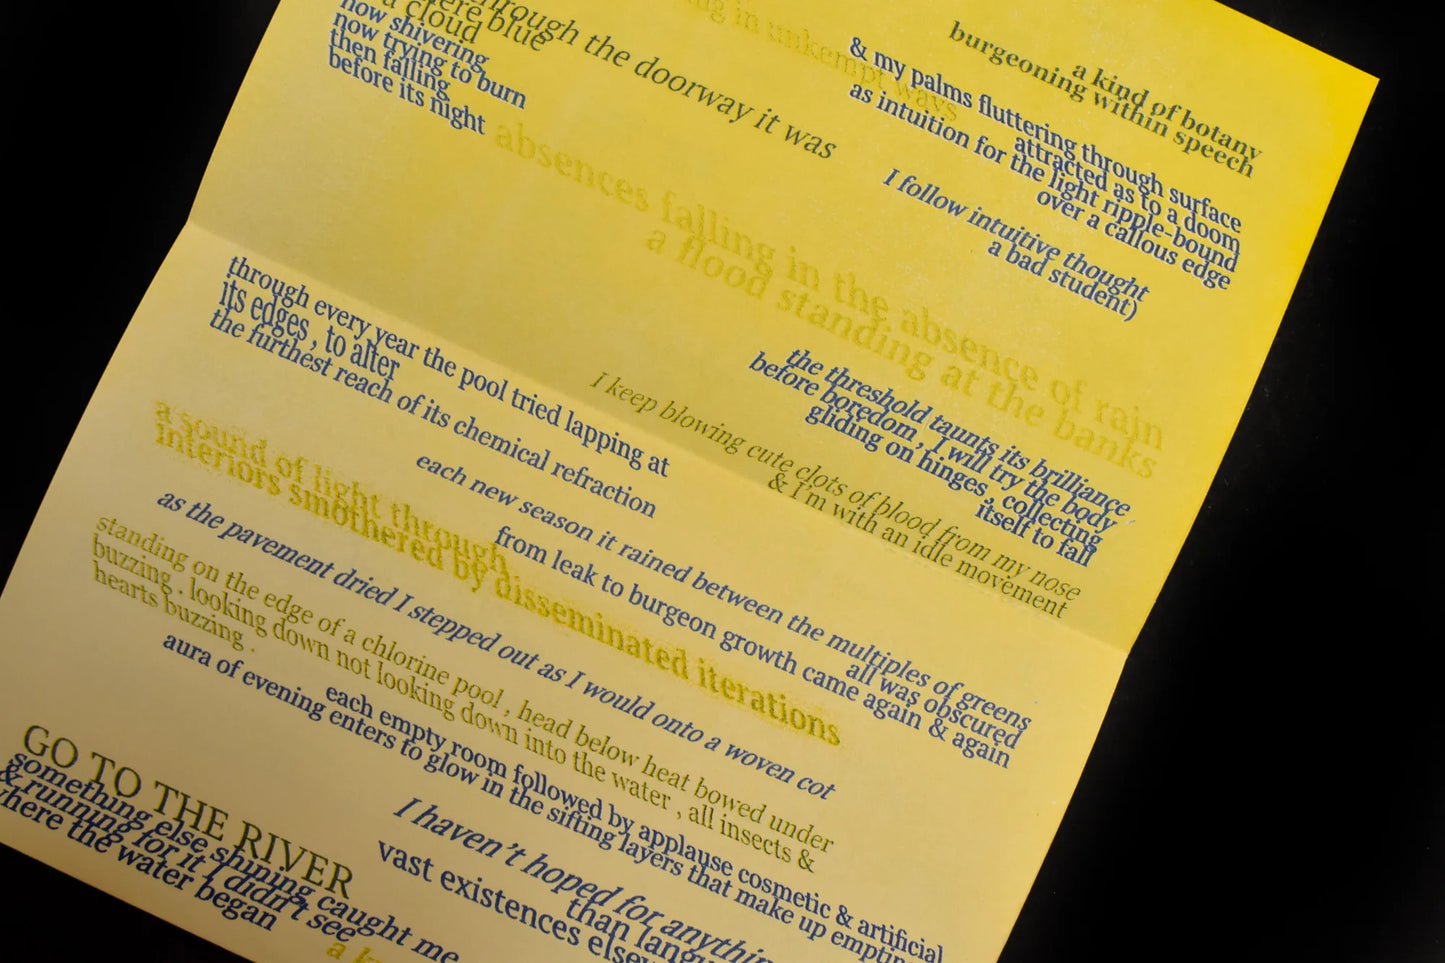 through the doorway it was
here blue
a cloud
now shivering
now trying to burn
then falling
before its night
in unkempt ways
burgeoning within speech
a kind of botany
& my palms fluttering through surface
attracted as to a doom
as intuition for the light ripple-bound
over a callous edge
I follow intuitive thought
a bad student)
absences falling in the absence of rain
a flood standing at the banks
the threshold taunts its brilliance
before boredom , I will try the body
gliding on hinges , collecting
itself to fall
I keep blowing cute clots of blood from my nose
& I'm with an idle movement
through every year the pool tried lapping at
its edges , to alter
the furthest reach of its chemical refraction
each new season it rained between the multiples of greens
all was obscured
from leak to burgeon growth came again & again
a sound of light through
interiors smothered by disseminated iterations
as the pavement dried I stepped out as I would onto a woven cot
standing on the edge of a chlorine pool , head below heat bowed under
buzzing . looking down not looking down into the water , all insects &
hearts buzzing .
each empty room followed by applause cosmetic & artificial
aura of evening enters to glow in the sifting layers that make up
I haven't hoped for
than
vast existences
GO TO THE RIVER
something else shining caught me
& running for it I didn't see
where the water began
a